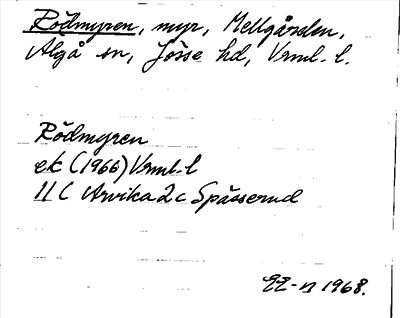 Rödmyren, myr, Mellgården,
Älgå sn, Jösse hd, Vrml. l.
Rödmyren
ek (1966) Vrml. l
11 C Arvika 2 c Spässerud
1968.